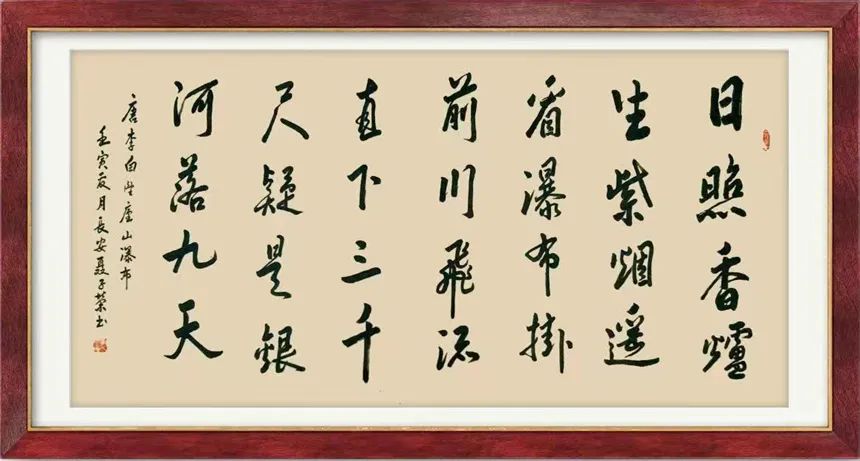 日照香爐
生紫烟遥
看瀑布掛
前川飛流
直下三千
尺疑是銀
河落九天
唐李白望廬山瀑布
壬寅夏月長安聶子榮书